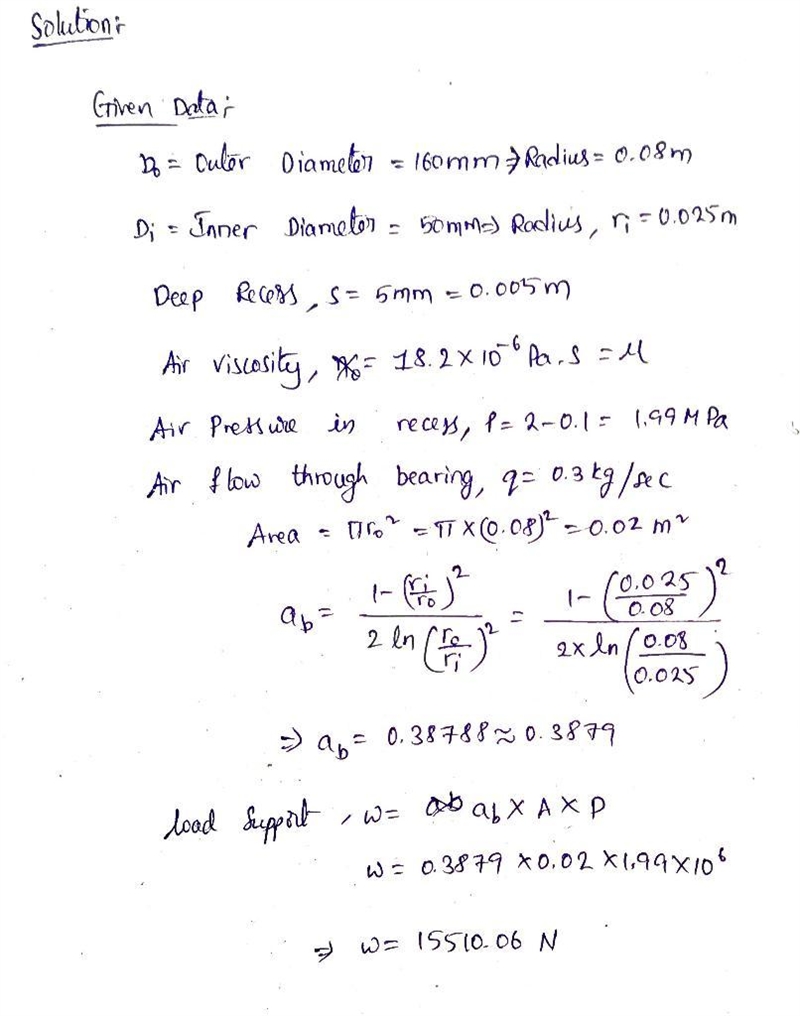 Solution:-
Given Data:-
D₀ = Outer Diameter = 160mm ⇒ Radius = 0.08m
Di = Inner Diameter = 50mm ⇒ Radius, ri = 0.025m
Deep Recess, s = 5mm = 0.005m
Air Viscosity, = 18.2 × 10⁻⁶ Pa.s = μ
Air Pressure in recess, P = 2-0.1 = 1.99 MPa
Air flow through bearing, q = 0.3 kg/sec
Area = πr₀² = π × (0.08)² = 0.02 m²
ab = (1 - (ri/r₀)²) / (2 ln (r₀/ri)²) = (1 - (0.025/0.08)²) / (2 × ln (0.08/0.025))
⇒ ab = 0.38788 ≈ 0.3879
load Support, w = ab × A × P
w = 0.3879 × 0.02 × 1.99 × 10⁶
⇒ w = 15510.06 N